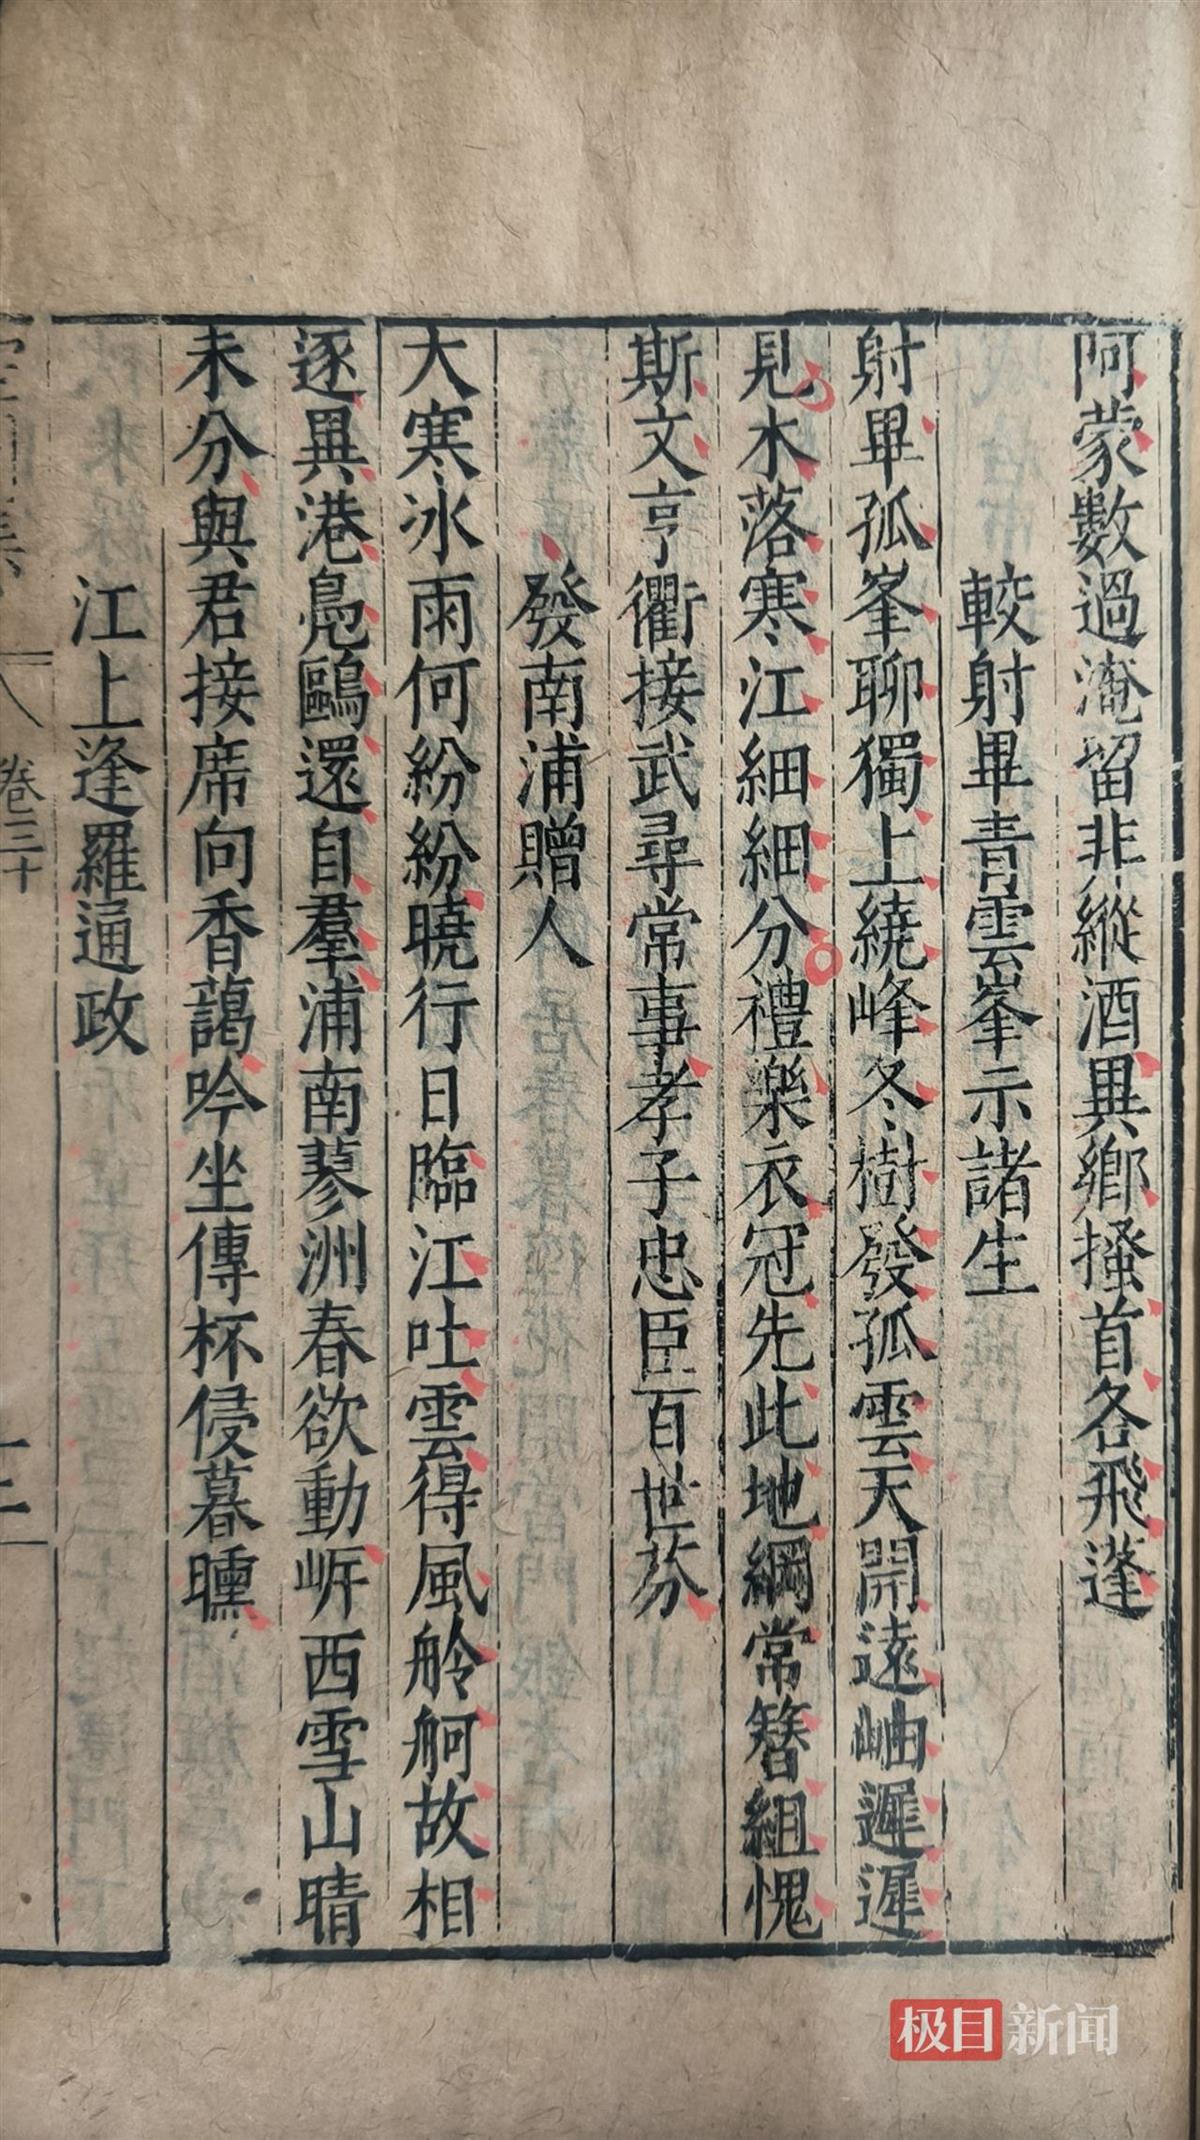 阿蒙數過淹留非縱酒異鄉搔首各飛蓬
較射畢青雲峯示諸生
射畢孤峯聊獨上繞峰冬樹發孤雲天開遠岫遲遲
見木落寒江細細分禮樂衣冠先此地綱常簪組愧
斯文亨衢接武尋常事孝子忠臣百世芬
發南浦贈人
大寒冰雨何紛紛曉行日臨江吐雲得風舲舸故相
逐異港鳧鷗還自羣浦南蓼洲春欲動岍西雪山晴
未分與君接席向香藹吟坐傳杯侵暮曛
江上逢羅通政
卷三十
极目新闻